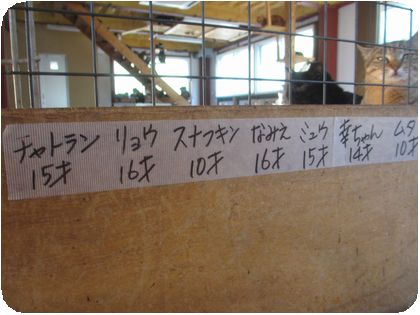 チャトラン リョウ スナフキン なみえ ミュウ 幸ちゃん ムタ
15才 16才 10才 16才 15才 14才 10才